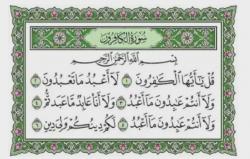 سورة الكافرون
بسم الله الرحمن الرحيم
قُلْ يَٰٓأَيُّهَا ٱلْكَٰفِرُونَ ١ لَآ أَعْبُدُ مَا تَعْبُدُونَ ٢
وَلَآ أَنتُمْ عَٰبِدُونَ مَآ أَعْبُدُ ٣ وَلَآ أَنَا۠ عَابِدٌ مَّا عَبَدتُّمْ ٤
وَلَآ أَنتُمْ عَٰبِدُونَ مَآ أَعْبُدُ ٥ لَكُمْ دِينُكُمْ وَلِىَ دِينِ ٦